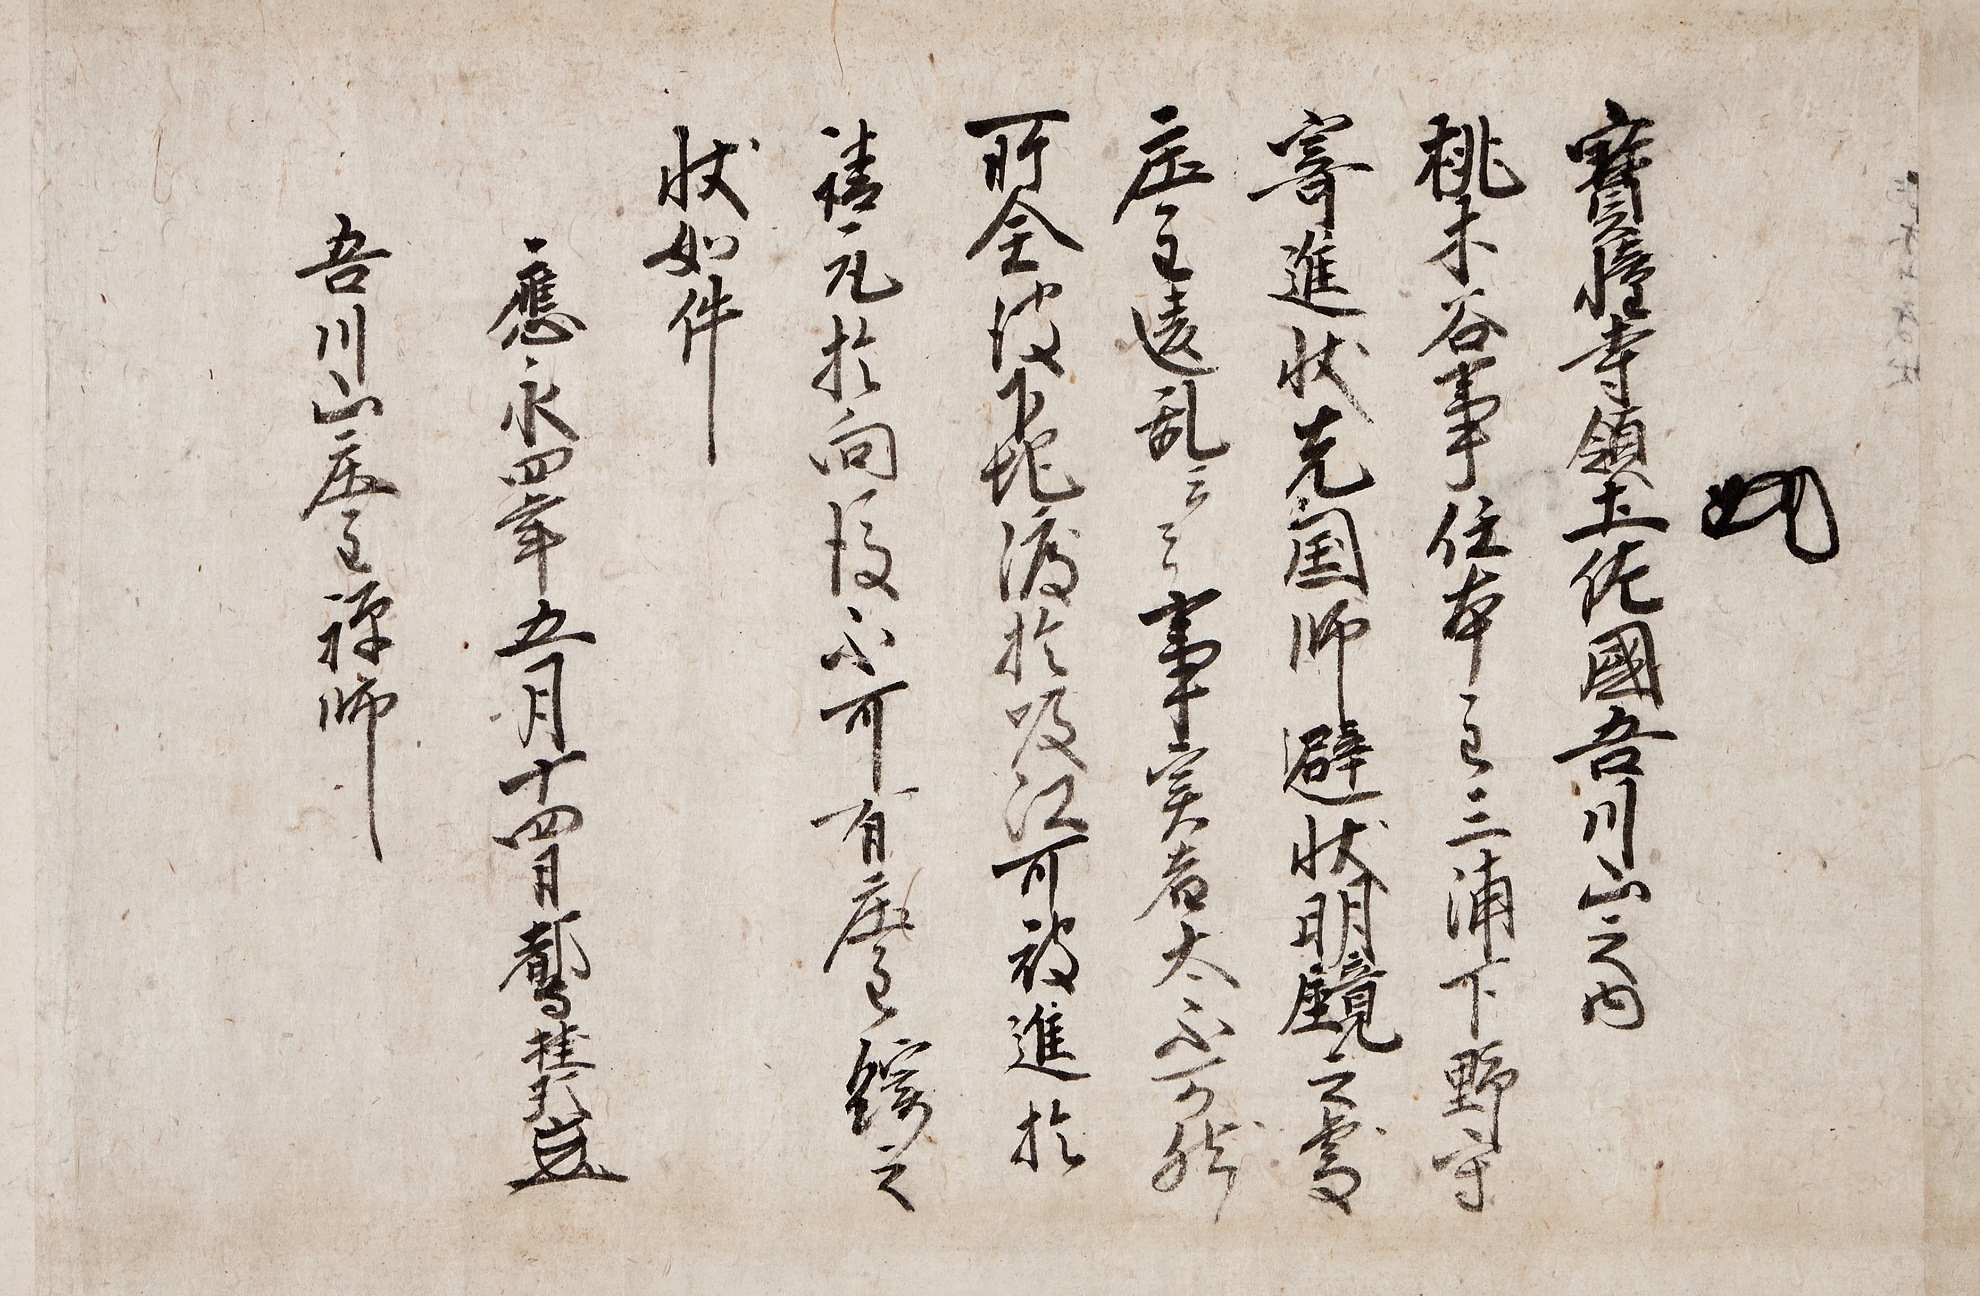 寶幢寺領土佐國吾川山之内
桃木谷事任本主三浦下野守
寄進状先国師避状明鏡之處
庄主違乱云々事実者太不可然
所全彼下地渡於吸江可被進於
請元於向後不可有庄主綺之
状如件
應永四年五月十四日
吾川山庄主禅師